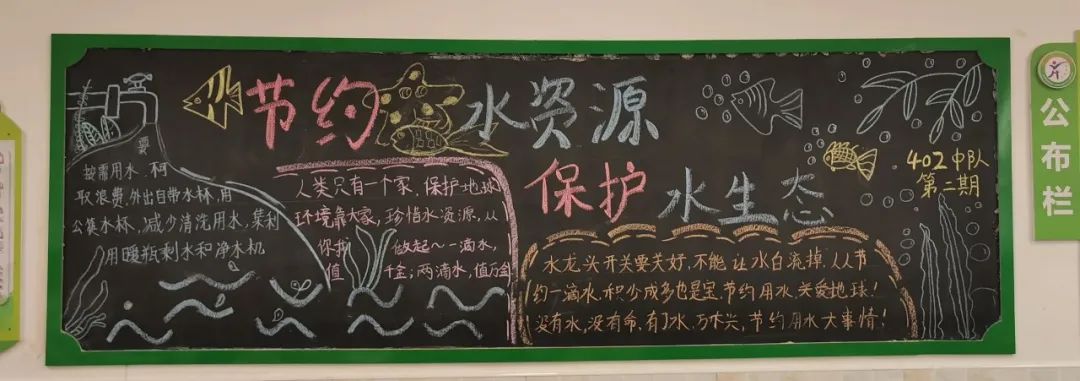 节约水资源
保护水生态
402中队
第二期
要
按需用水,不可
取浪费,外出自带水杯,用
公筷水杯,减少清洗用水,集利
用暖瓶剩水和净水机
人类只有一个家,保护地球
环境靠大家,珍惜水资源,从
你我 做起~一滴水,
值 千金;两滴水,值万金
水龙头开关要关好,不能让水白流掉,从从节
约一滴水,积少成多也是宝,节约用水,关爱地球!
没有水,没有命,有了水,万木兴,节约用水大事情!
公布栏